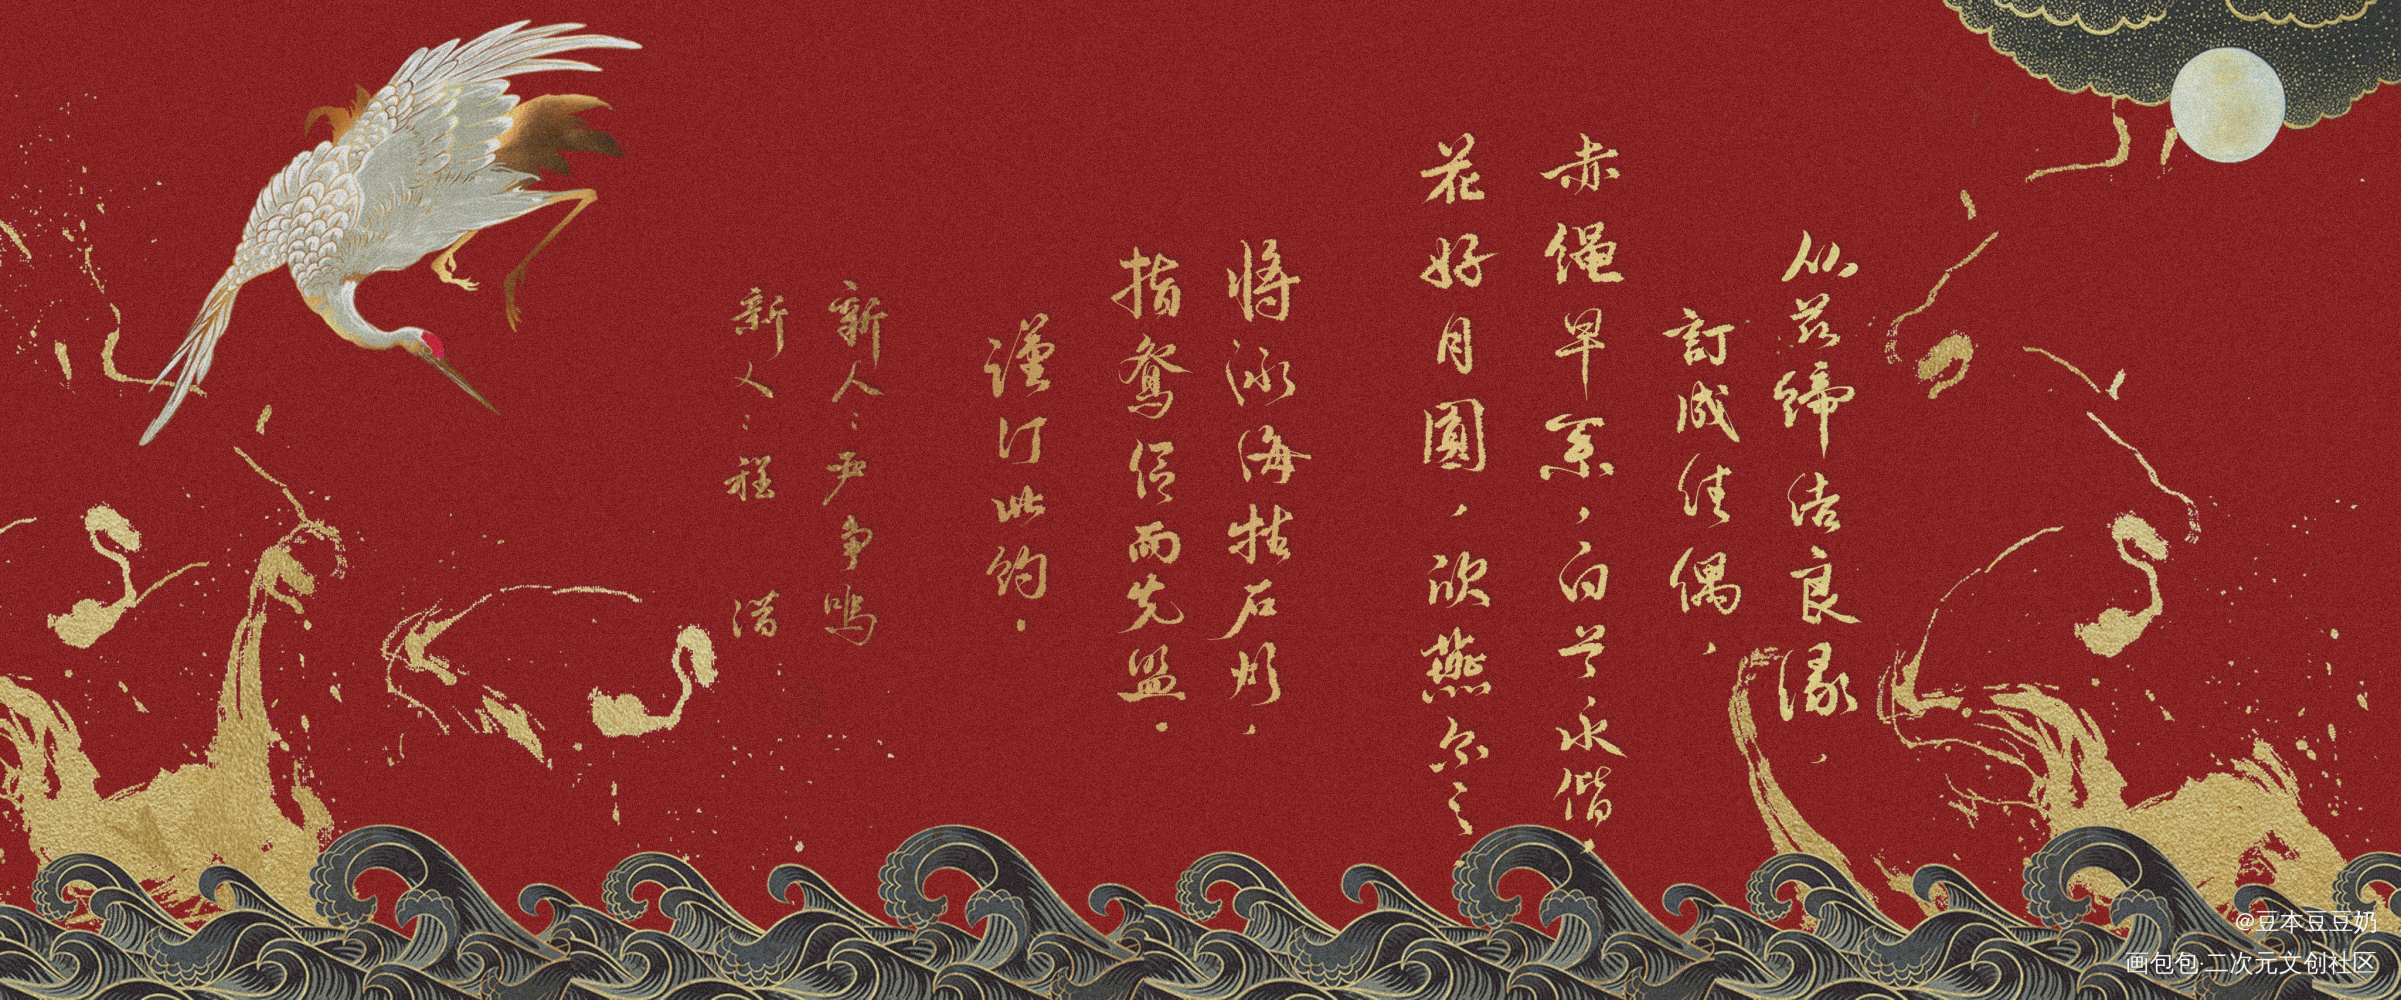 从兹締结良缘，
訂成佳偶，
赤绳早系，白首永偕。
花好月圓，欣燕尔之
将泳海枯石烂，
指鸳侣而先盟。
谨订此约。
新人：严争鸣
新人：程 潜
@豆本豆豆奶
画包包·二次元文创社区